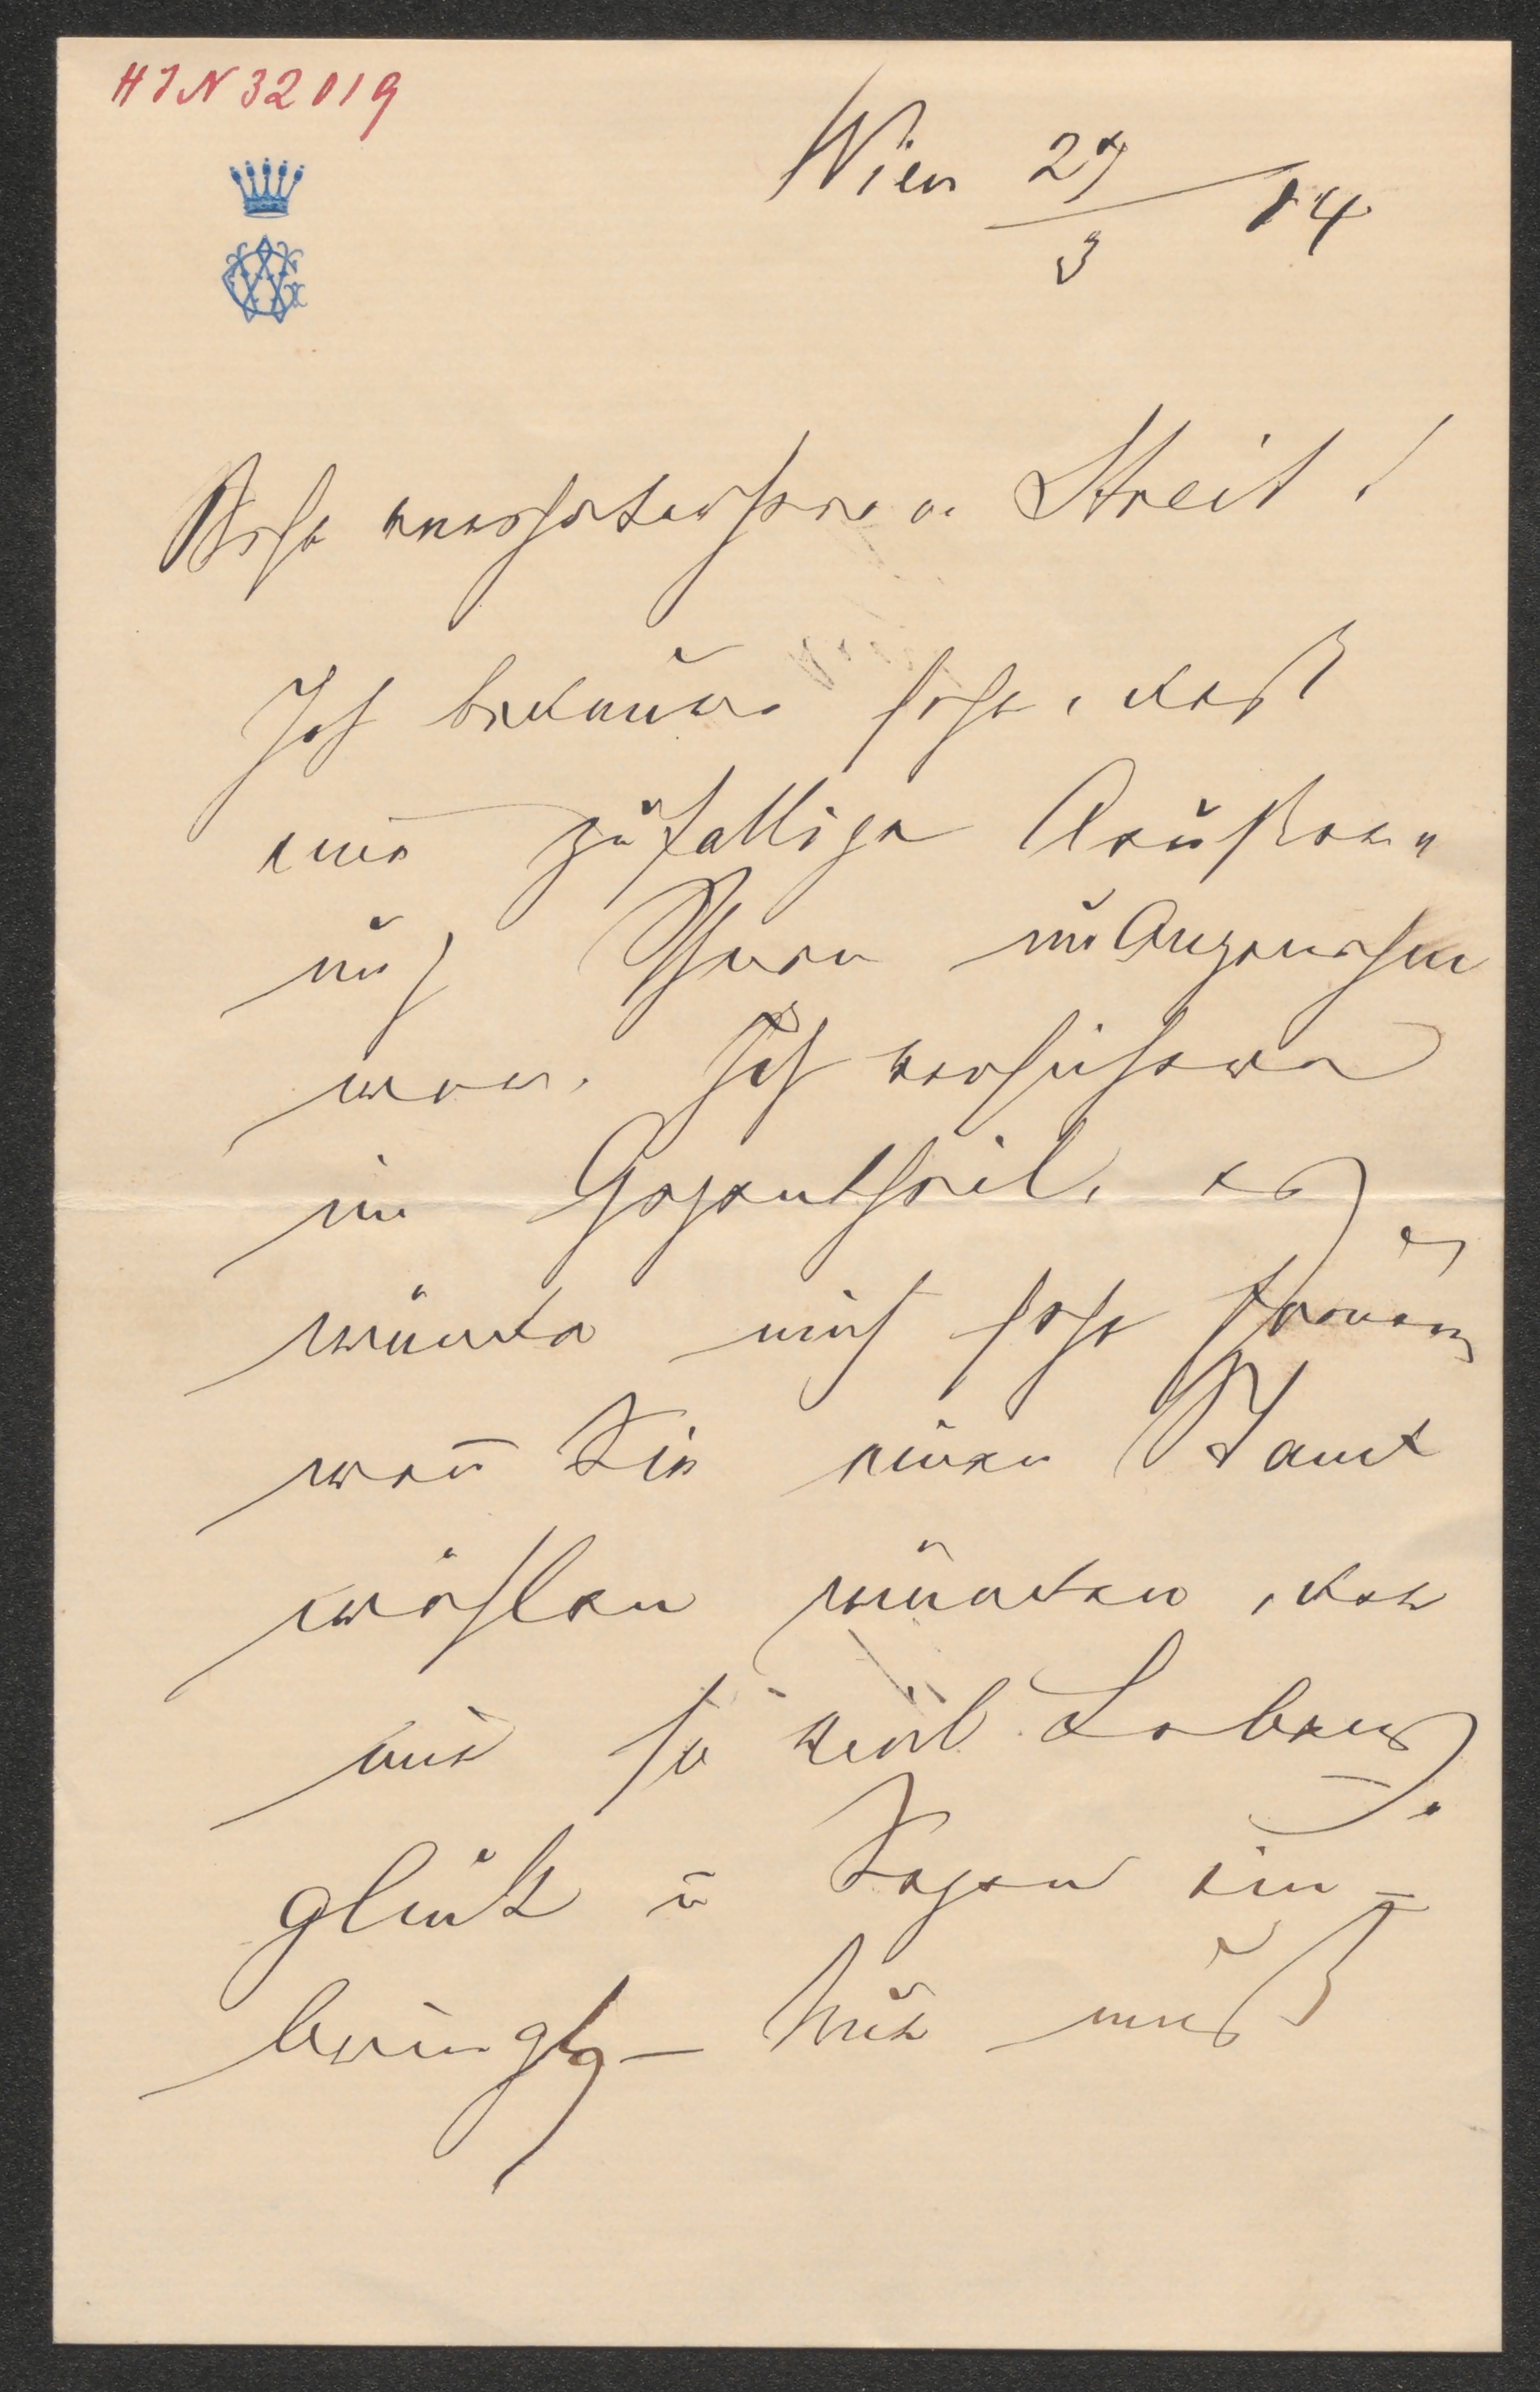 HIN 32019
Wien 27/3 84
Sehr verehrter Herr v. Streit!
Ich bedauere sehr, daß
eine zufällige Aeußer„
ung Ihnen unangenehm
war. Ich versichere
im Gegentheil, es
würde mich sehr freuen,
wen̄ Sie einen Stand
wählen würden, der
mir so viel Lebens„
glück u Segen ein„
bringt – nur muß